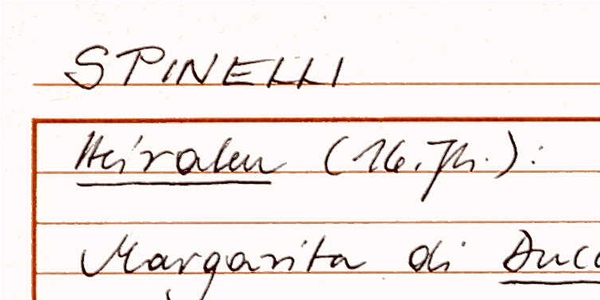 SPINELLI
Heiraten (16. Jh.):
Margarita di